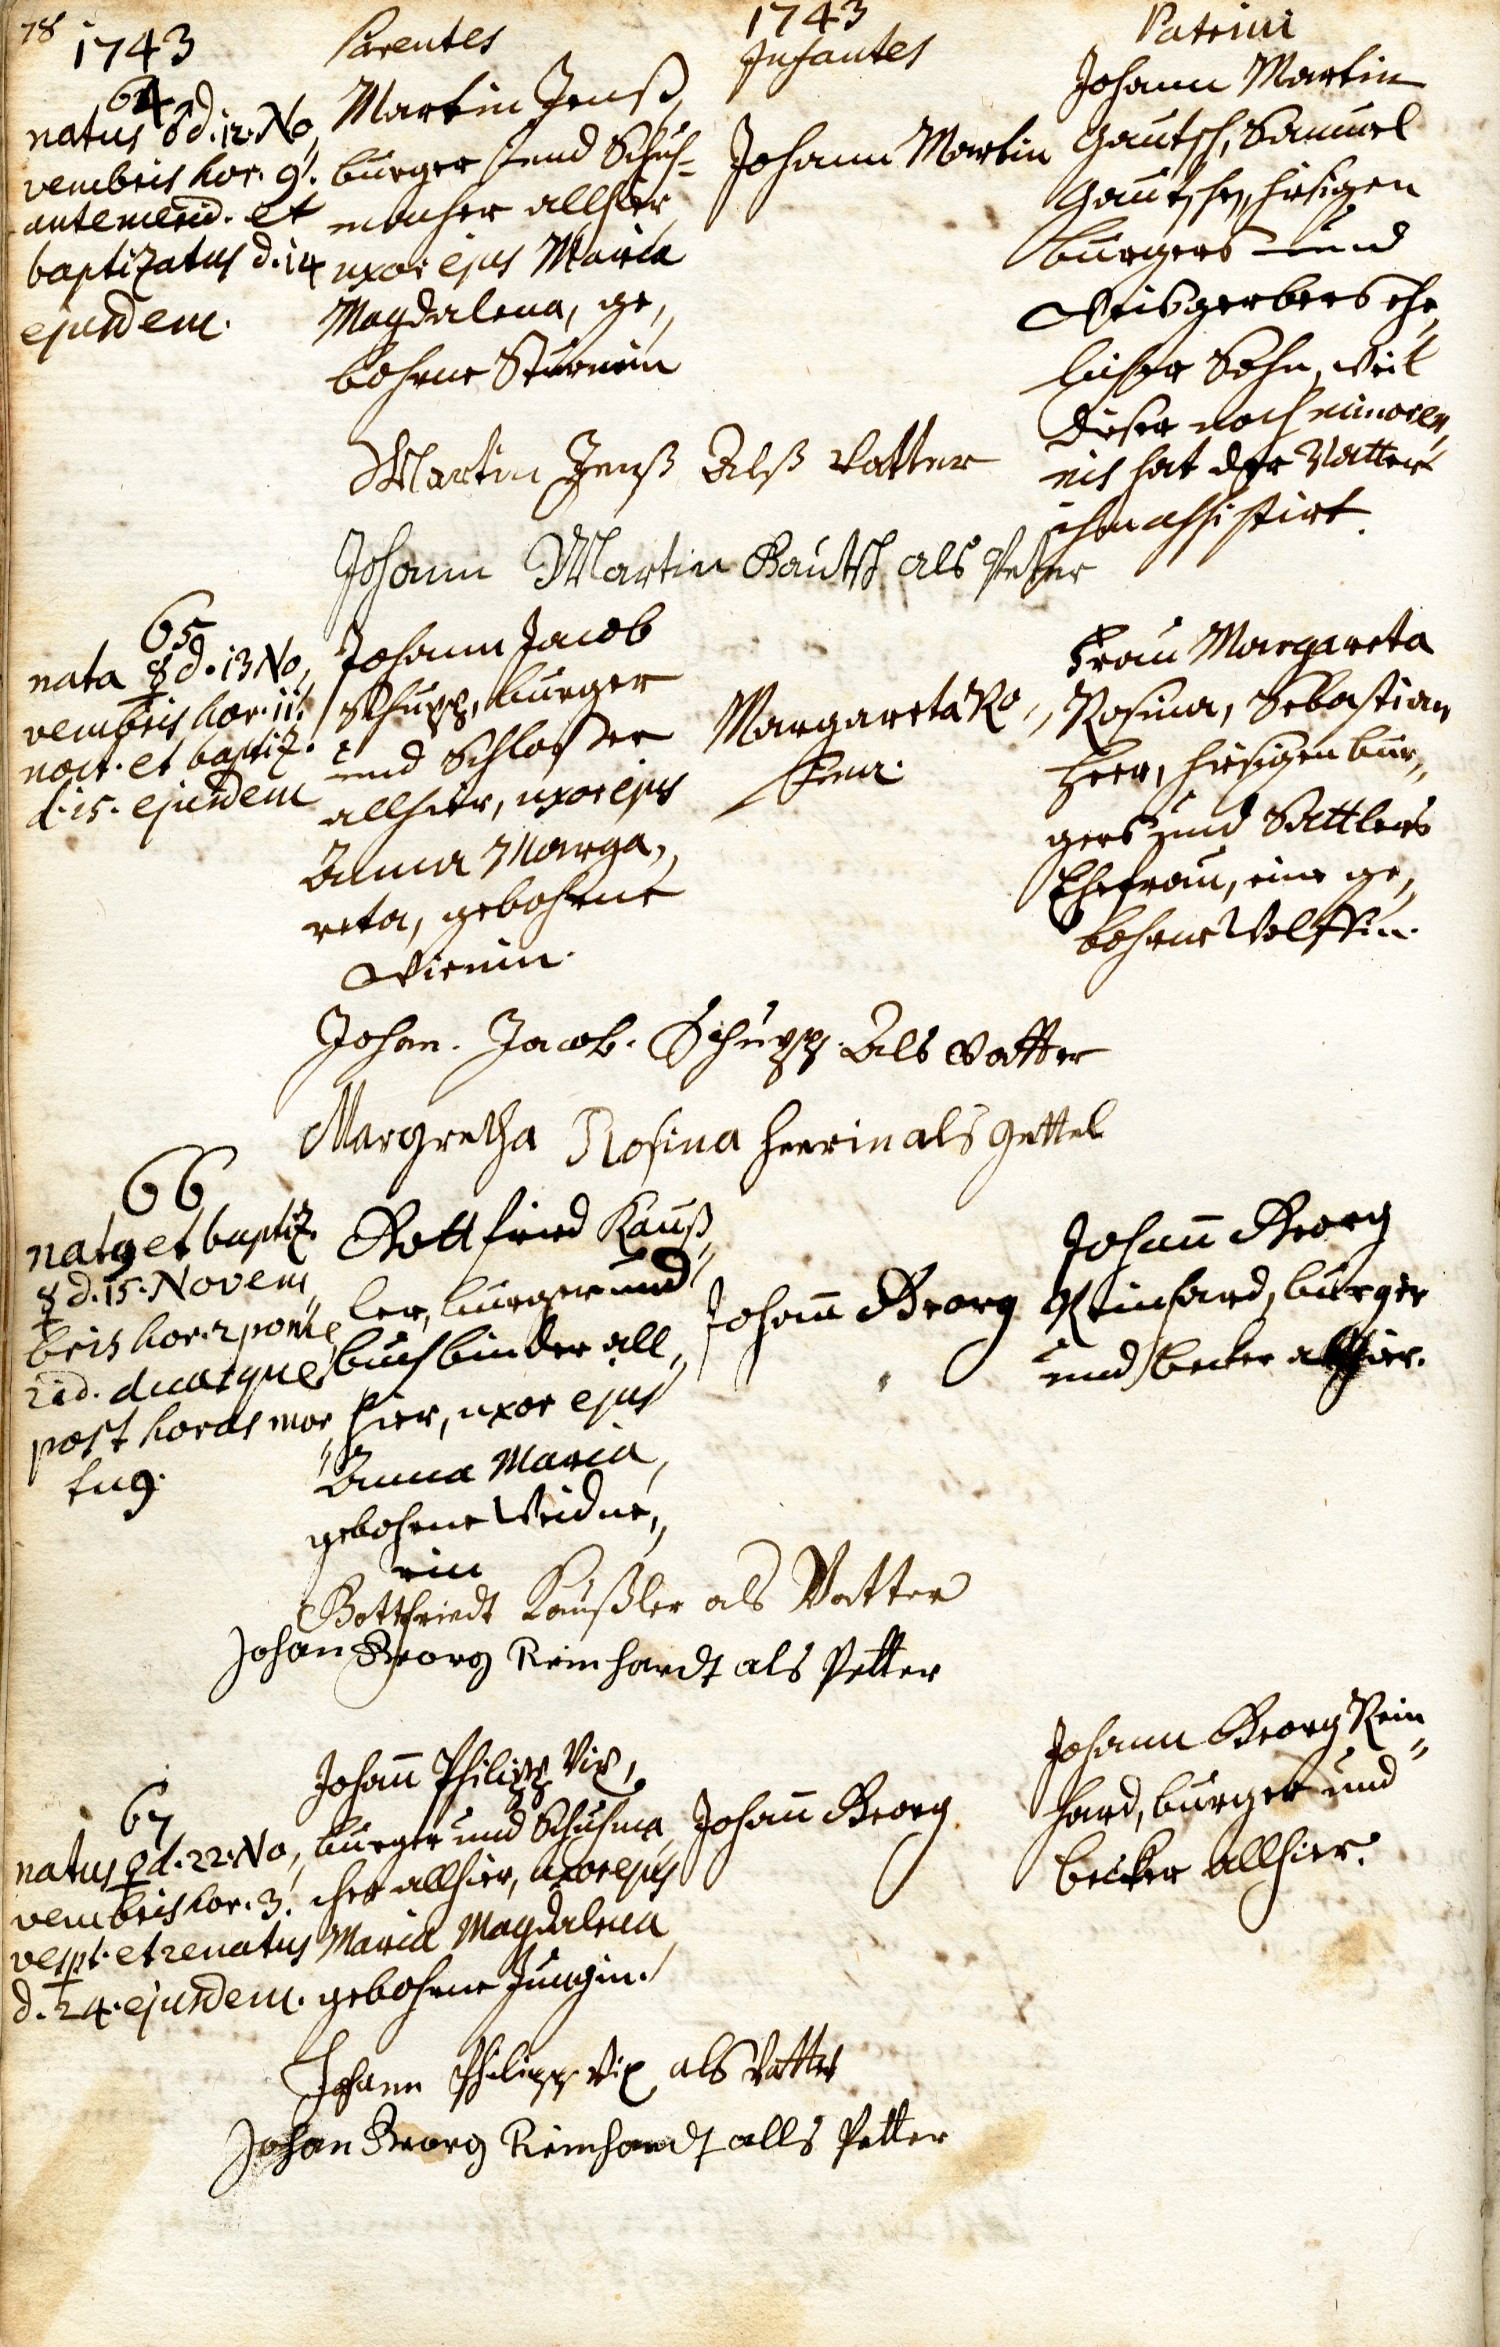 78
1743
Parentes
1743
Infantes
Patrini
64
natus ♂ d. 12. No,
vembris hor. 9.
antemerid. et
baptizatus d. 14
ejusdem.
Martin Jenß,
burger und Schuh-
macher allhier,
uxor ejus Maria
Magdalena, ge,,
bohrne Sturmin
Johann Martin
Johann Martin
Gautsch, Samuel
Gautsches, hiesigen
burgers und
Weisgerbers ehe,,
licher Sohn, weil
dieser noch minoren,,
nis hat der Vatter
ihm assistirt.
Martin Jenß Alß Vatter
Johann Martin Gautsch als Petter
65
nata ☿ d. 13 No,
vembris hor. 11.
noct. et baptiz.
d. 15. ejusdem
Johann Jacob
Schupp, burger
und Schlosser
allhier, uxor ejus
Anna Marga,,
reta, gebohrne
Margareta Ro,,
sina.
Frau Margareta
Rosina, Sebastian
Heer, hiesigen bur,,
gers und Sattlers
Ehefrau, eine ge,,
bohrne Wolffin.
Johan. Jacob. Schupp. Als Vatter
Margretha Rosina Heerin als Gettel
66
nat9 et baptiz.
d. 15. Novem,
bris hor. 2 pome,
rid. duasque
post horas mor,,
tu9.
Gottfried Kauß,,
ler, burger und
buchbinder all,,
hier, uxor ejus
Anna Maria,
gebohrne Weidne,,
rin
Johan̄ Georg
Johan̄ Georg
Reinhard, burger
und becker allhier.
Gottfriedt Kaußler als Vatter
Johan Georg Reinhardt als Petter
67
natus ♀ d. 22. No,
vembris hor. 3.
vespt. et renatus
d. 24. ejusdem.
Johan̄ Philipp Vix,
burger und Schuhma,,
cher allhier, uxor ejus
Maria Magdalena
gebohrne Jungin.
Johan̄ Georg
Johann Georg Rein,,
hard, burger und
becker allhier.
Johann Philipp Vix als Vatter
Johan Georg Reinhardt alls Petter